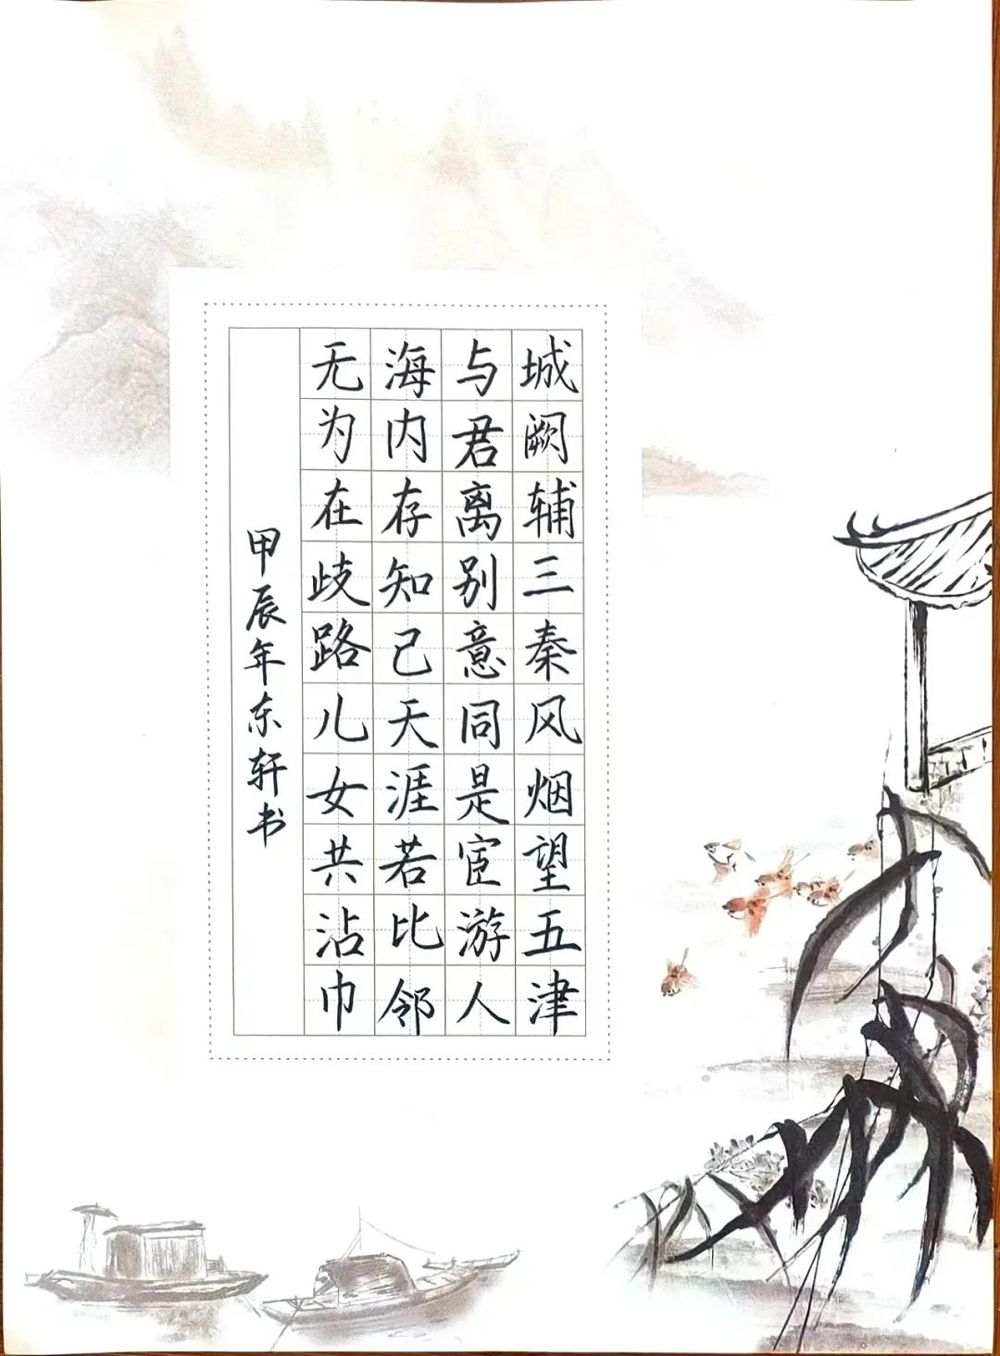 城阙辅三秦风烟望五津
与君离别意同是宦游人
海内存知己天涯若比邻
无为在歧路儿女共沾巾
甲辰年东轩书